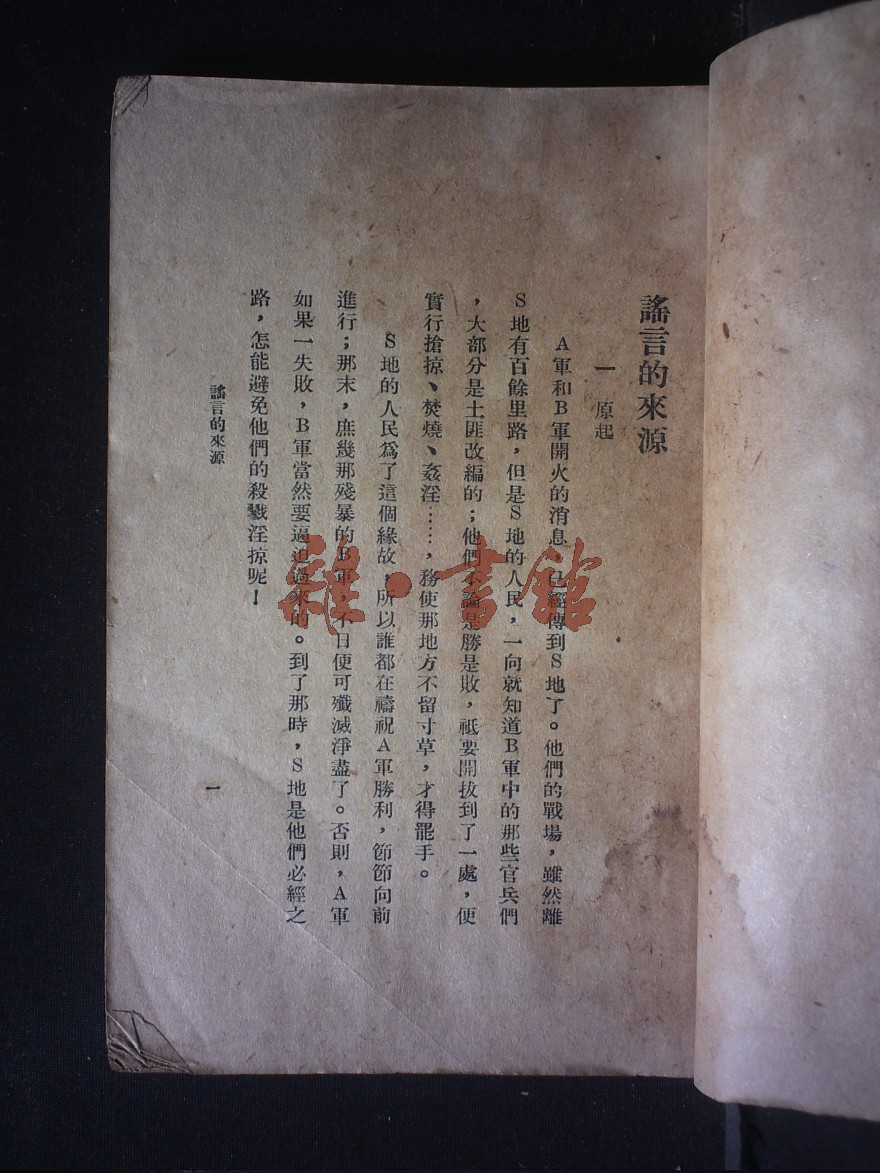 謠言的來源
一 原起
A軍和B軍開火的消息，已經傳到S地了。他們的戰場，雖然離
S地有百餘里路，但是S地的人民，一向就知道B軍中的那些官兵們
，大部分是土匪改編的；他們不論是勝是敗，祗要開拔到了一處，便
實行搶掠、焚燒、姦淫……，務使那地方不留寸草，才得罷手。
S地的人民爲了這個緣故，所以誰都在禱祝A軍勝利，節節向前
進行；那末，庶幾那殘暴的B軍，不日便可殲滅淨盡了。否則，A軍
如果一失敗，B軍當然要逼迫過來的。到了那時，S地是他們必經之
路，怎能避免他們的殺戮淫掠呢！
謠言的來源
一
雜·書館